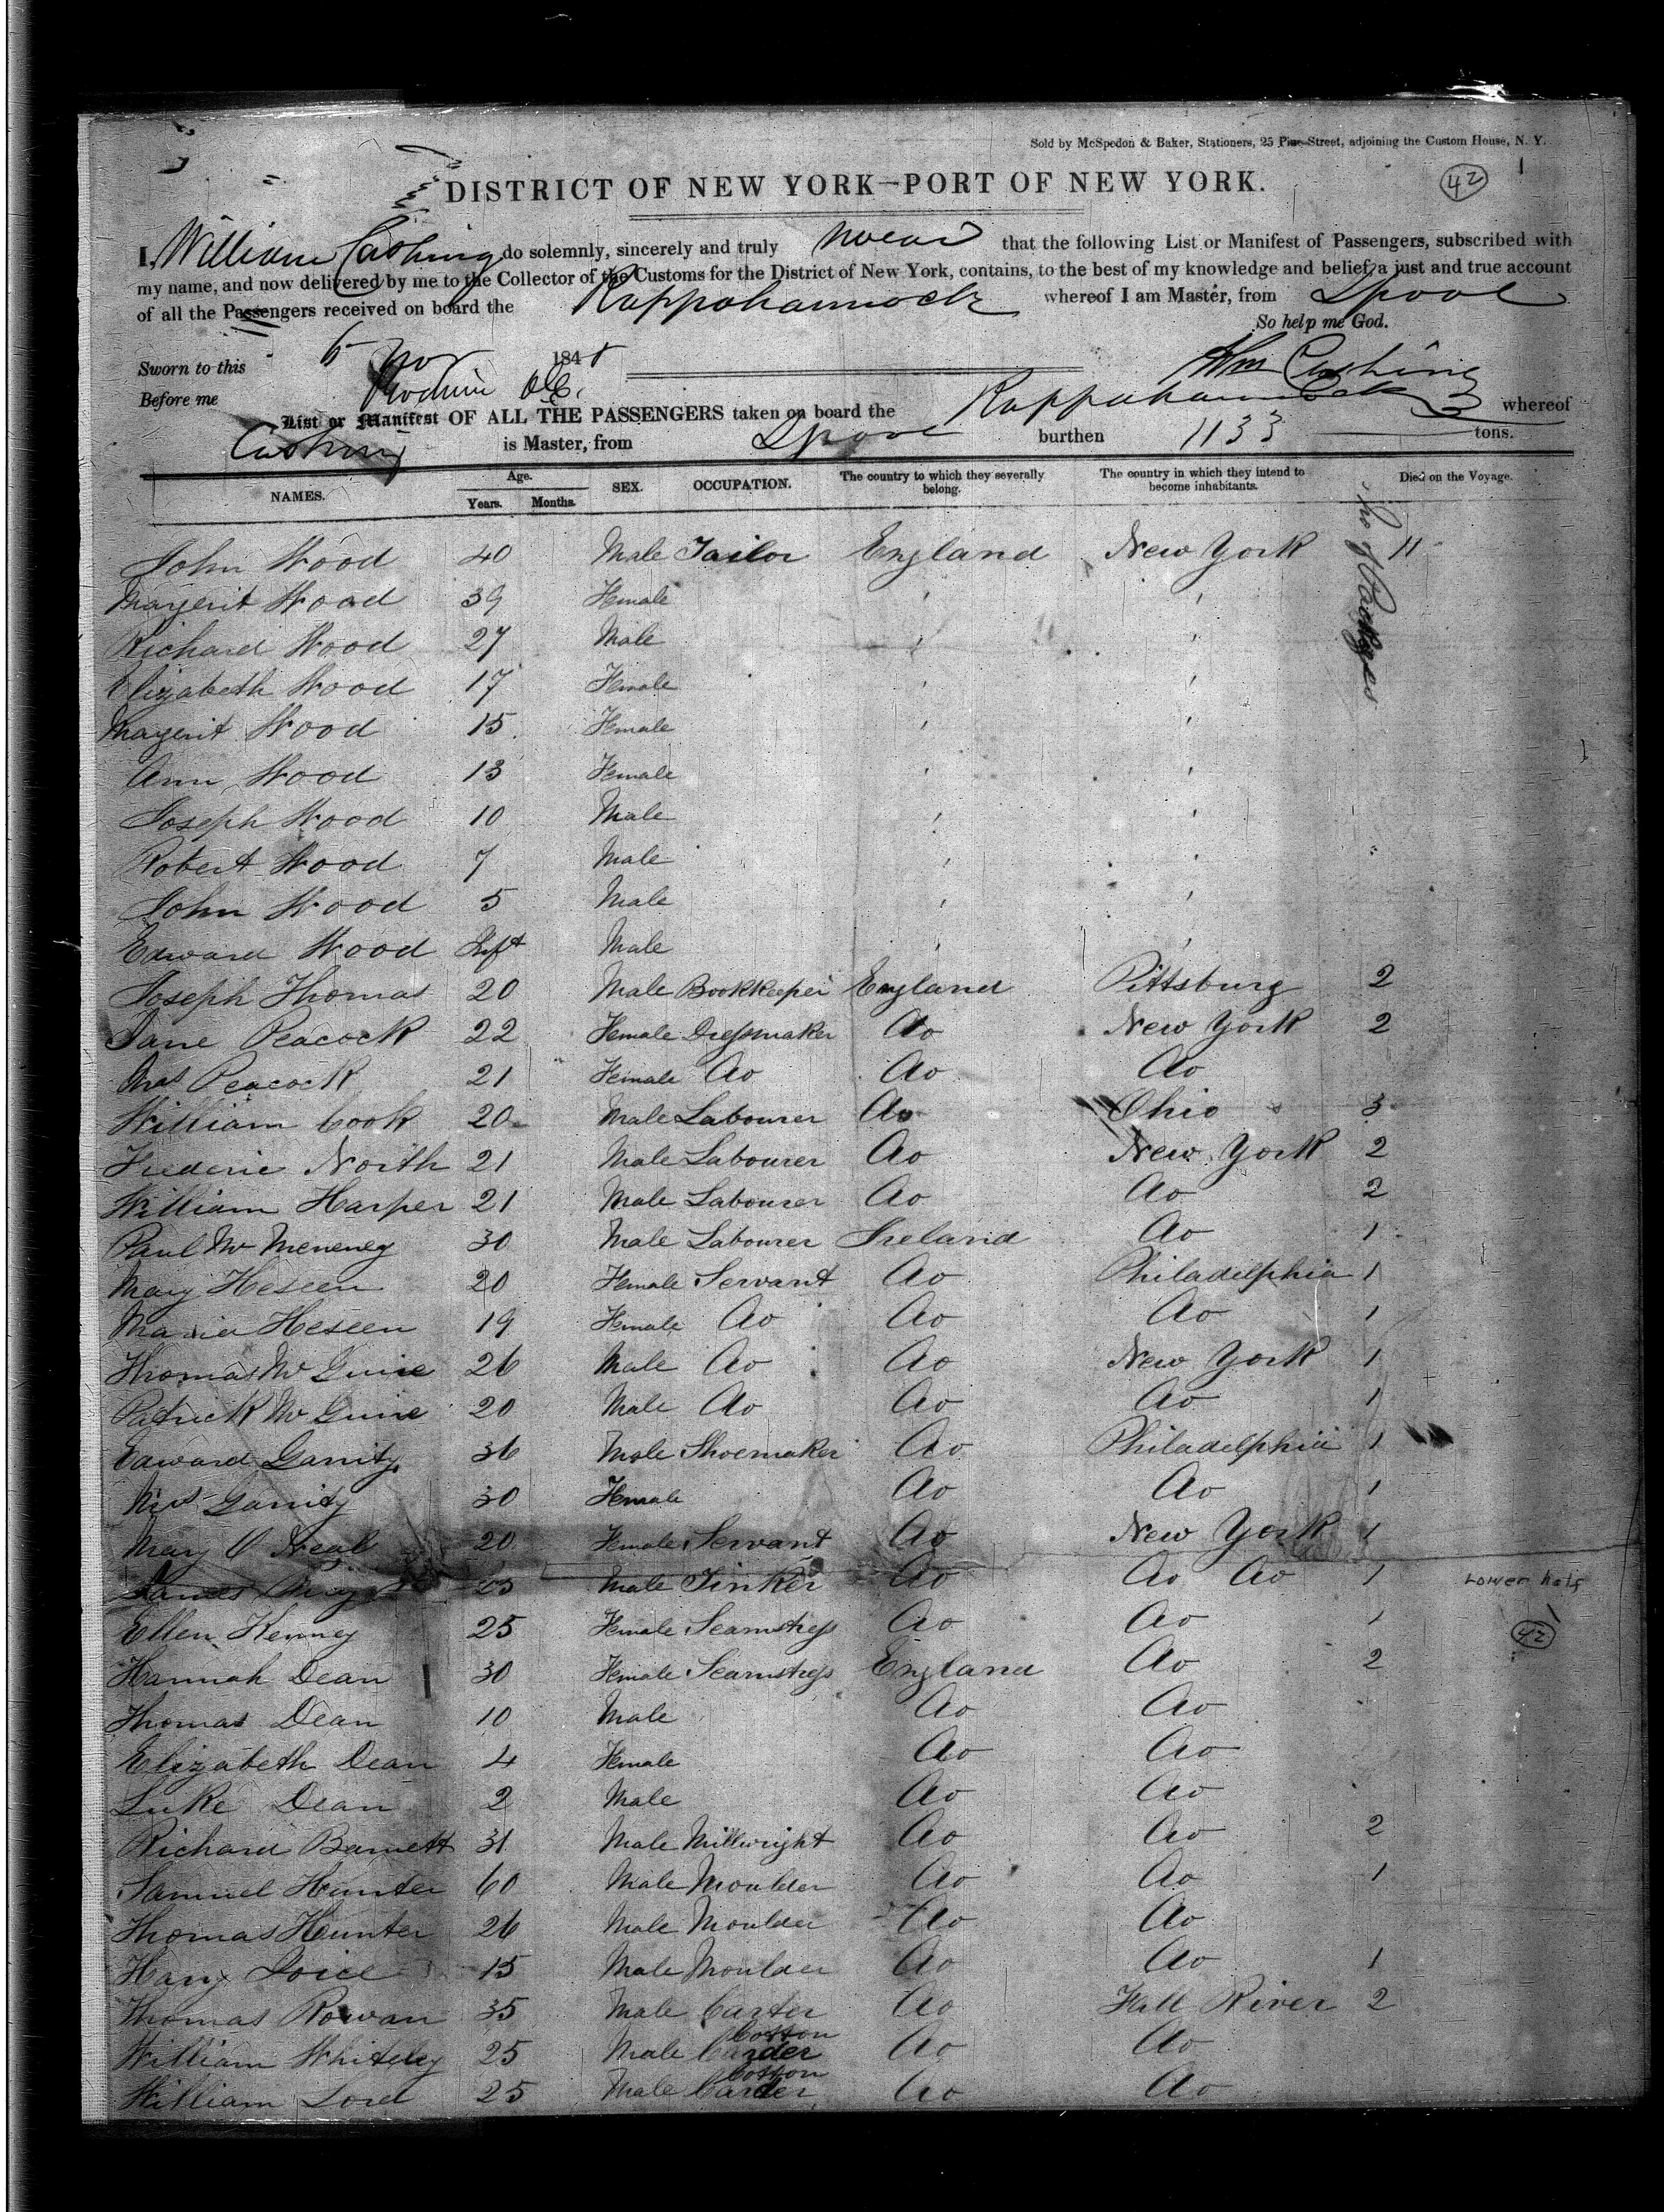 Sold by McSpedon & Baker, Stationers, 25 Pine-Street, adjoining the Custom House, N. Y.
1
DISTRICT OF NEW YORK—PORT OF NEW YORK.
42
I, William Cushing do solemnly, sincerely and truly swear that the following List or Manifest of Passengers, subscribed with
my name, and now delivered by me to the Collector of the Customs for the District of New York, contains, to the best of my knowledge and belief, a just and true account
of all the Passengers received on board the Rappahannock whereof I am Master, from Lpool
So help me God.
Sworn to this 6 Nov 184
Wm Cushing
Before me
List or Manifest OF ALL THE PASSENGERS taken on board the Rappahannock whereof
Cushing is Master, from Lpool burthen 1133 tons.
NAMES. Age. Years. Months. SEX. OCCUPATION. The country to which they severally belong. The country in which they intend to become inhabitants. Died on the Voyage.
No of Packages
John Wood 40 Male Tailor England New York 11
Margerit Wood 39 Female ' '
Richard Wood 27 Male ' '
Elizabeth Wood 17 Female ' '
Margerit Wood 15 Female ' '
Ann Wood 13 Female ' '
Joseph Wood 10 Male ' '
Robert Wood 7 Male ' '
John Wood 5 Male ' '
Edward Wood Inft Male ' '
Joseph Thomas 20 Male Bookkeeper England Pittsburg 2
Jane Peacock 22 Female Dressmaker Do New York 2
Mrs Peacock 21 Female Do Do Do
William Cook 20 Male Labourer Do Ohio 3
Frederic North 21 Male Labourer Do New York 2
William Harper 21 Male Labourer Do Do 2
Paul Mc Meneney 30 Male Labourer Ireland Do 1
Mary Heseen 20 Female Servant Do Philadelphia 1
Maria Heseen 19 Female Do Do Do 1
Thomas Mc Guire 26 Male Do Do New York 1
Patrick Mc Guire 20 Male Do Do Do 1
Edward Garrity 36 Male Shoemaker Do Philadelphia 1
Mrs Garrity 30 Female Do Do 1
Mary O Neal 20 Female Servant Do New York 1
James Male Tinker Do Do Do 1
Lower half
Ellen Kenney 25 Female Seamstress Do Do 1
42
Hannah Dean 30 Female Seamstress England Do 2
Thomas Dean 10 Male Do Do
Elizabeth Dean 4 Female Do Do
Luke Dean 2 Male Do Do
Richard Barnett 31 Male Millwright Do Do 2
Samuel Hunter 60 Male Moulder Do Do 1
Thomas Hunter 26 Male Moulder Do Do
Hany 15 Male Moulder Do Do 1
Thomas Rowan 35 Male Carter Do Fall River 2
William Whiteley 25 Male Cotton Carder Do Do
William Lord 25 Male Cotton Carder Do Do